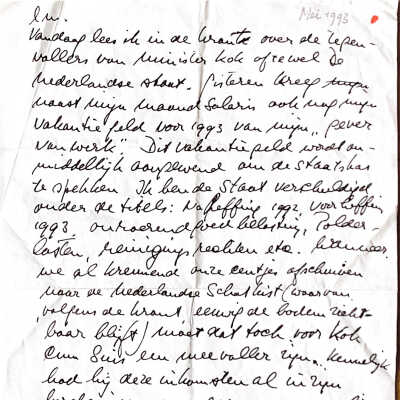 Mei 1993
L.W.
Vandaag lees ik in de krant over de tegen-
vallers van minister Kok oftewel de
Nederlandse staat. Gisteren kreeg
naast mijn maandsalaris ook nog mijn
vakantiegeld voor 1993 van mijn "gever
van werk". Dit vakantiegeld wordt on-
middellijk aangewend om de staatskas
te spekken. Ik ben de Staat verschuldigd
onder de titels: Naheffing 1992, Voorheffing
1993, onroerendgoedbelasting, Polder-
lasten, reinigingsrechten etc. Wanneer
we al kreunend onze centjes afschuiven
naar de Nederlandse Schatkist (waarvan
volgens de krant, eeuwig de bodem zicht-
baar blijft) moet dat toch voor Kok
cum suis een meevaller zijn. Kennelijk
had hij deze inkomsten al in zijn